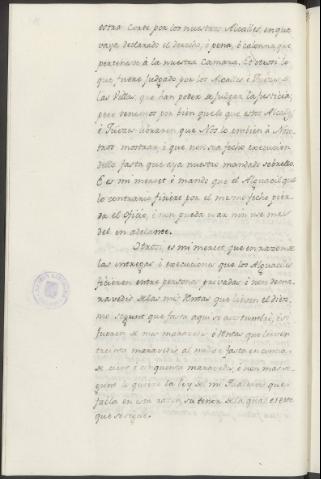 estra Corte por los nuestros Alcalles, en que
vaya declarado el derecho, ó pena, ó calonna que
pertenesce á la nuestra Camara. E otrosi lo
que fuere judgado por los Alcalles é Jueces de
las Villas, que han poder de judgar la justicia,
pero tenemos por bien que lo que estos Alcalles
é Jueces libraren que Nos lo embien á Nos
mostrar, é que non sea fecha execucion
dello fasta que aya nuestro mandado sobrello.
E es mi mercet é mando que el Alguacil que
lo contrario ficiere por el mesmo fecho pier
da el Oficio, é non pueda usar nin use mas
del en adelante.
Otrosi, es mi mercet que en razon de
las entregas é execuciones que los Alguaciles
ficieren entre personas privadas é non de ma
ravedis de las mis Rentas que lieven el diez
mo segunt que fasta aqui se acostumbró, é si
fueren de mis maravedis é Rentas que lieven
treinta maravedis al millar fasta en contia
de cient é cinquenta maravedis, é non mas se
gunt lo quiere la Ley de mi Quaderno que
fabla en esta razon, su tenor de la qual es este
que se sigue.